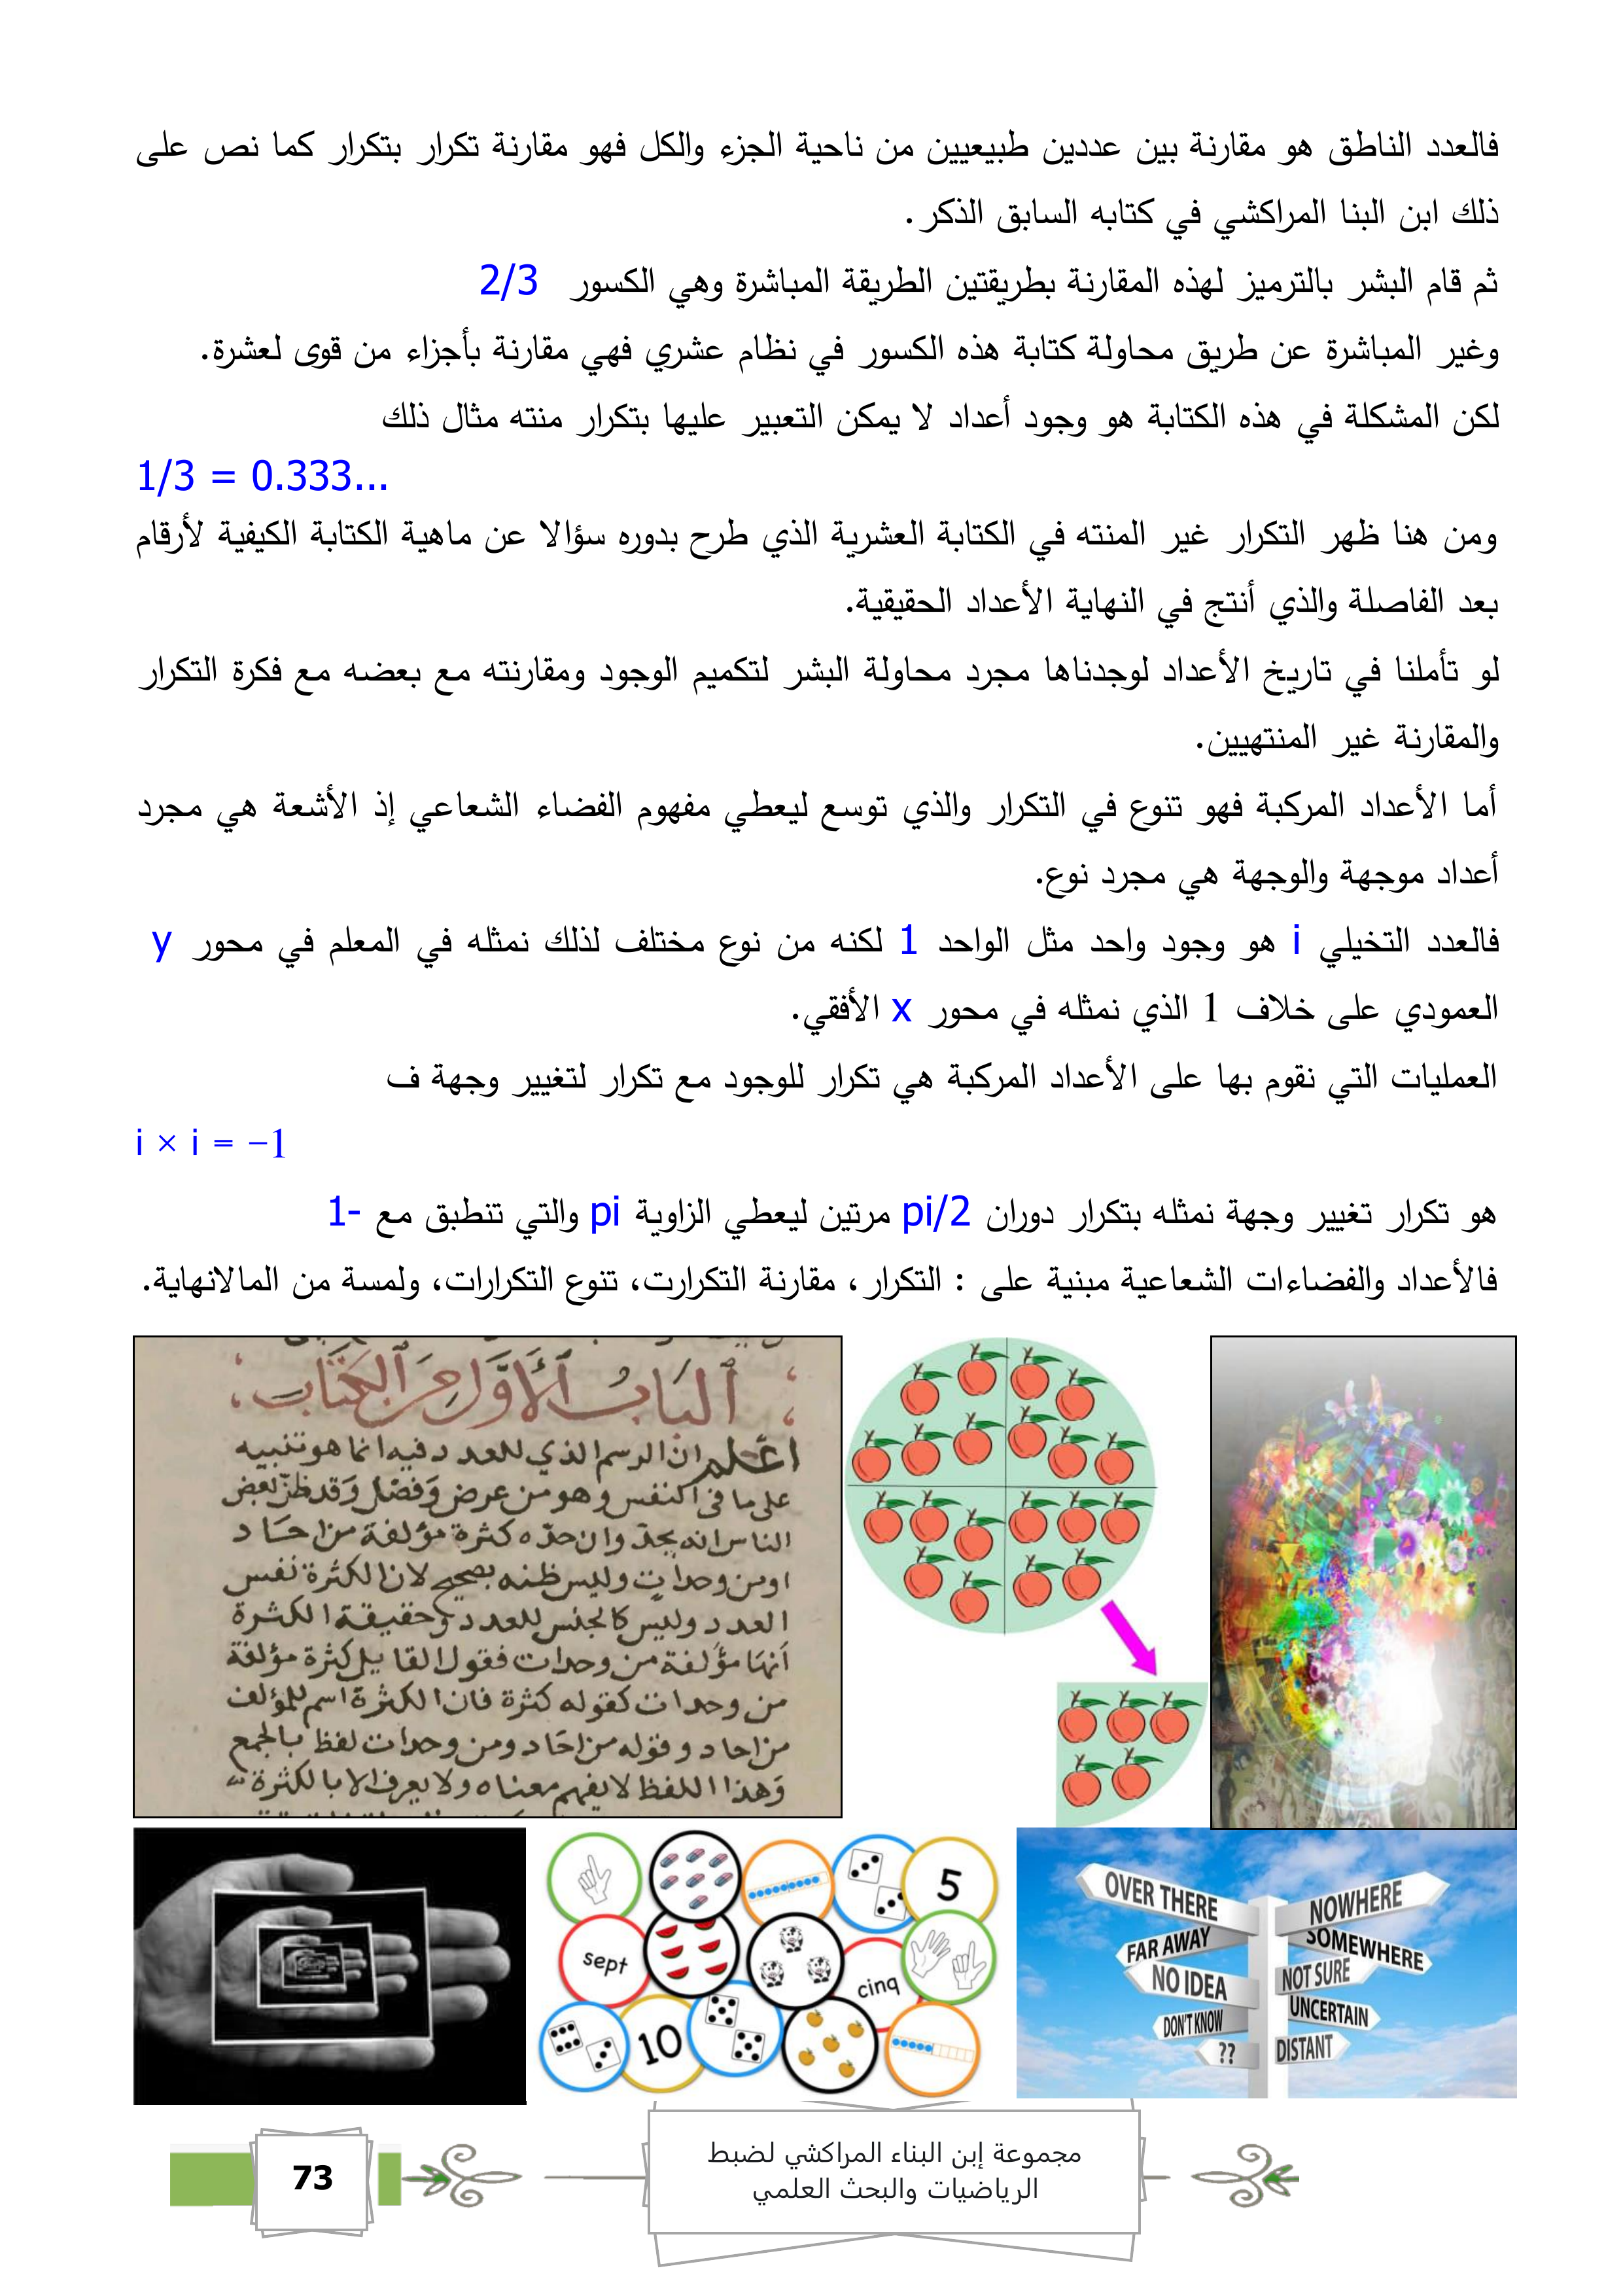 فالعدد الناطق هو مقارنة بين عددين طبيعيين من ناحية الجزء والكل فهو مقارنة تكرار بتكرار كما نص على
ذلك ابن البنا المراكشي في كتابه السابق الذكر .
ثم قام البشر بالترميز لهذه المقارنة بطريقتين الطريقة المباشرة وهي الكسور 2/3
وغير المباشرة عن طريق محاولة كتابة هذه الكسور في نظام عشري فهي مقارنة بأجزاء من قوى لعشرة.
لكن المشكلة في هذه الكتابة هو وجود أعداد لا يمكن التعبير عليها بتكرار منته مثال ذلك
1/3 = 0.333...
ومن هنا ظهر التكرار غير المنته في الكتابة العشرية الذي طرح بدوره سؤالا عن ماهية الكتابة الكيفية لأرقام
بعد الفاصلة والذي أنتج في النهاية الأعداد الحقيقية.
لو تأملنا في تاريخ الأعداد لوجدناها مجرد محاولة البشر لتكميم الوجود ومقارنته مع بعضه مع فكرة التكرار
والمقارنة غير المنتهيين.
أما الأعداد المركبة فهو تنوع في التكرار والذي توسع ليعطي مفهوم الفضاء الشعاعي إذ الأشعة هي مجرد
أعداد موجهة والوجهة هي مجرد نوع.
فالعدد التخيلي i هو وجود واحد مثل الواحد 1 لكنه من نوع مختلف لذلك نمثله في المعلم في محور y
العمودي على خلاف 1 الذي نمثله في محور x الأفقي.
العمليات التي نقوم بها على الأعداد المركبة هي تكرار للوجود مع تكرار لتغيير وجهة ف
i × i = −1
هو تكرار تغيير وجهة نمثله بتكرار دوران pi/2 مرتين ليعطي الزاوية pi والتي تنطبق مع -1
فالأعداد والفضاءات الشعاعية مبنية على : التكرار ، مقارنة التكرارت، تنوع التكرارات، ولمسة من المالانهاية.
الباب الأول من الكتاب
اعلم ان الرسم الذي للعدد فيه انما هو تنبيه
على ما في النفس وهو من عرض وفصل وقد ظن بعض
الناس انه يحد وان حده كثرة مؤلفة من احاد
او من وحدات وليس ظنه بصحيح لان الكثرة نفس
العدد وليس كالجنس للعدد وحقيقة الكثرة
انها مؤلفة من وحدات فقول القايل كثرة مؤلفة
من وحدات كقوله كثرة فان الكثرة اسم للمؤلف
من احاد وقوله من احاد ومن وحدات لفظ بالجمع
وهذا اللفظ لا يفهم معناه ولا يعرف الا بالكثرة
5
sept
cinq
10
OVER THERE
NOWHERE
FAR AWAY
SOMEWHERE
NO IDEA
NOT SURE
DON'T KNOW
UNCERTAIN
??
DISTANT
73
مجموعة إبن البناء المراكشي لضبط
الرياضيات والبحث العلمي